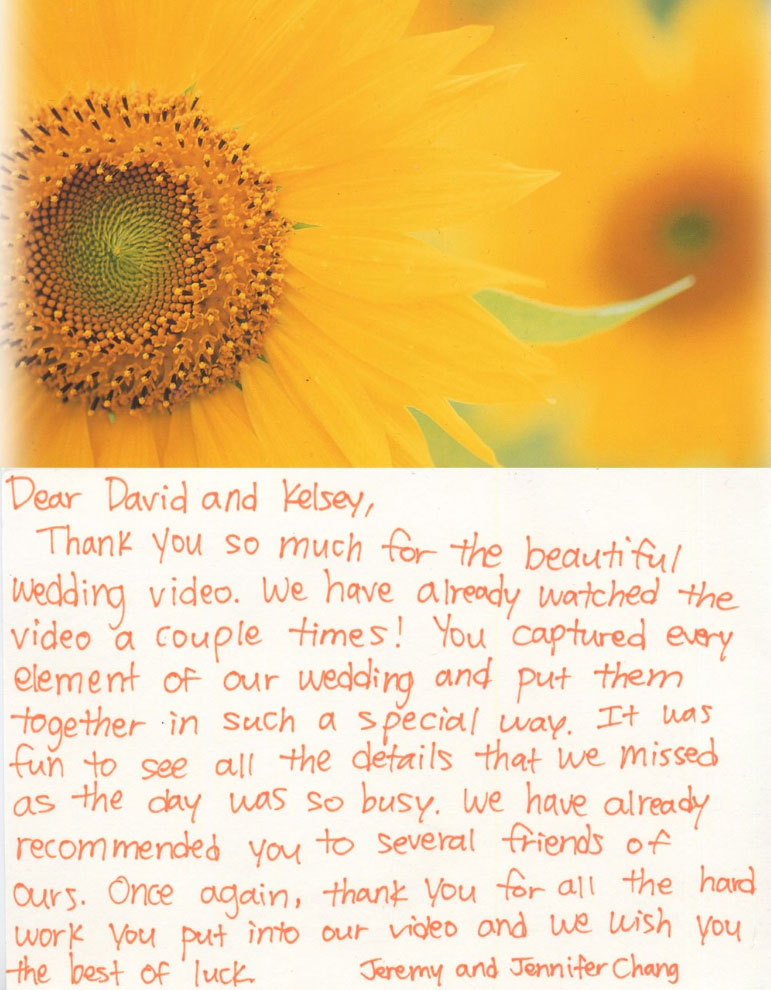 Dear David and Kelsey,
Thank you so much for the beautiful
wedding video. We have already watched the
video a couple times! You captured every
element of our wedding and put them
together in such a special way. It was
fun to see all the details that we missed
as the day was so busy. We have already
recommended you to several friends of
ours. Once again, thank you for all the hard
work you put into our video and we wish you
the best of luck. Jeremy and Jennifer Chang